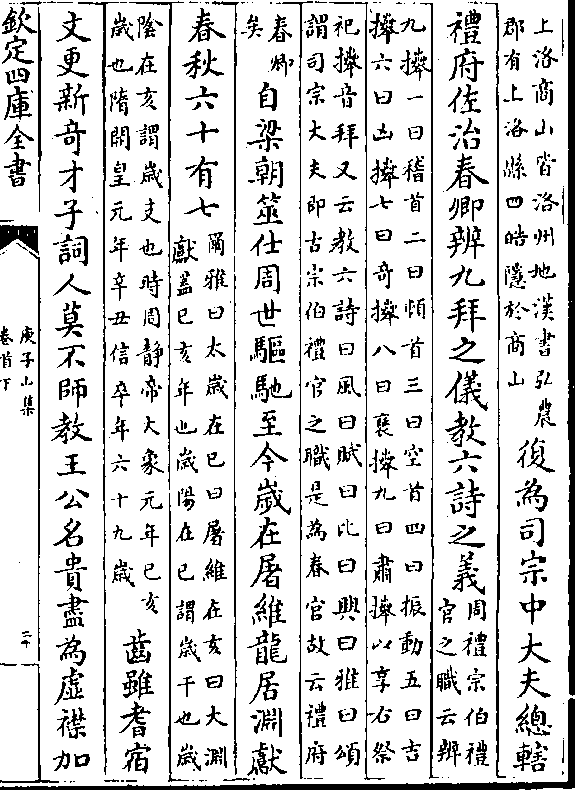 上洛商山皆洛州地漢書弘農
郡有上洛縣四皓隱於商山
復為司宗中大夫總轄
禮府佐治春卿辨九拜之儀教六詩之義
周禮宗伯禮
官之職云辨
九𢷎一曰稽首二曰頓首三曰空首四曰振動五曰吉
𢷎六曰凶𢷎七曰奇𢷎八曰襃𢷎九曰肅𢷎以享右祭
祀𢷎音拜又云教六詩曰風曰賦曰比曰興曰雅曰頌
謂司宗大夫即古宗伯禮官之職是為春官故云禮府
春卿
矣
自梁朝筮仕周世驅馳至今歲在屠維龍居淵獻
春秋六十有七
爾雅曰太歲在巳曰屠維在亥曰大淵
獻蓋巳亥年也歲陽在巳謂歲干也歲
陰在亥謂歲支也時周静帝大象元年巳亥
歲也隋開皇元年辛丑信卒年六十九歲
齒雖耆宿
文更新奇才子詞人莫不師教王公名貴盡為虚襟加
欽定四庫全書
庾子山集
卷首下
二十